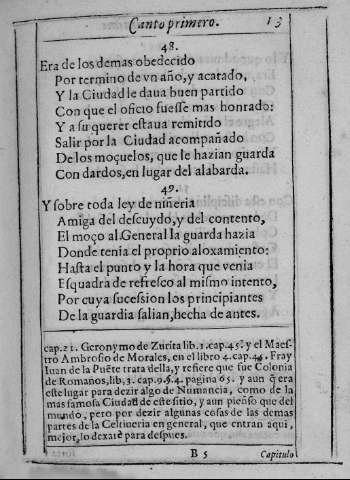 Canto primero. 13
48.
Era de los demas obedecido
Por termino de vn año, y acatado,
Y la Ciudad le daua buen partido
Con que el oficio fuesse mas honrado:
Y a su querer estaua remitido
Salir por la Ciudad acompañado
De los moçuelos, que le hazian guarda
Con dardos, en lugar del alabarda.
49.
Y sobre toda ley de niñeria
Amiga del descuydo, y del contento,
El moço al General la guarda hazia
Donde tenia el proprio aloxamiento:
Hasta el punto y la hora que venia
Esquadra de refresco al mismo intento,
Por cuya sucession los principiantes
De la guardia salian, hecha de antes.
cap. 21. Geronymo de Zurita lib. 1. cap. 45. y el Maes-
tro Ambrosio de Morales, en el libro 4. cap. 44. Fray
Iuan de la Puẽte trata della, y refiere que fue Colonia
de Romanos, lib, 3. cap. 9. §. 4. pagina 65. y aun q̃ era
este lugar para dezir algo de Numancia, como de la
mas famosa Ciudad de este sitio, y aun pienso que del
mundo, pero por dezir algunas cosas de las demas
partes de la Celtiueria en general, que entran aqui,
mejor, lo dexarè para despues.
B 5 Capitulo